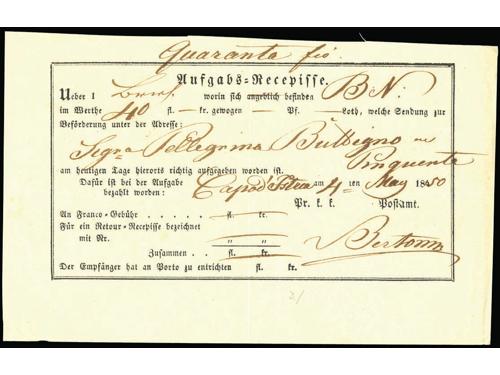 Quaranta fio
Aufgabs-Recepisse.
Ueber 1 Brief worin sich angeblich befinden BN:
im Werthe 40 fl. — kr. gewogen — Pf. — Loth, welche Sendung zur
Beförderung unter der Adresse:
Segra Pellegrina Bulbigno
Pinquente
am heutigen Tage hierorts richtig aufgegeben worden ist.
Dafür ist bei der Aufgabe Capod'Istria am 4 ten May 1850
bezahlt worden: Pr. k. k. Postamt.
An Franco-Gebühr . . . . fl. kr.
Für ein Retour-Recepisse bezeichnet
mit Nr. " "
Zusammen . . . . . fl. kr.
Der Empfänger hat an Porto zu entrichten fl. kr.